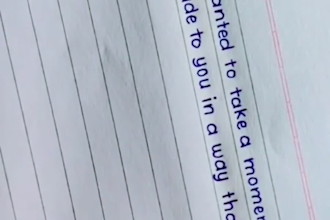 anted to take a momen
ude to you in a way tha